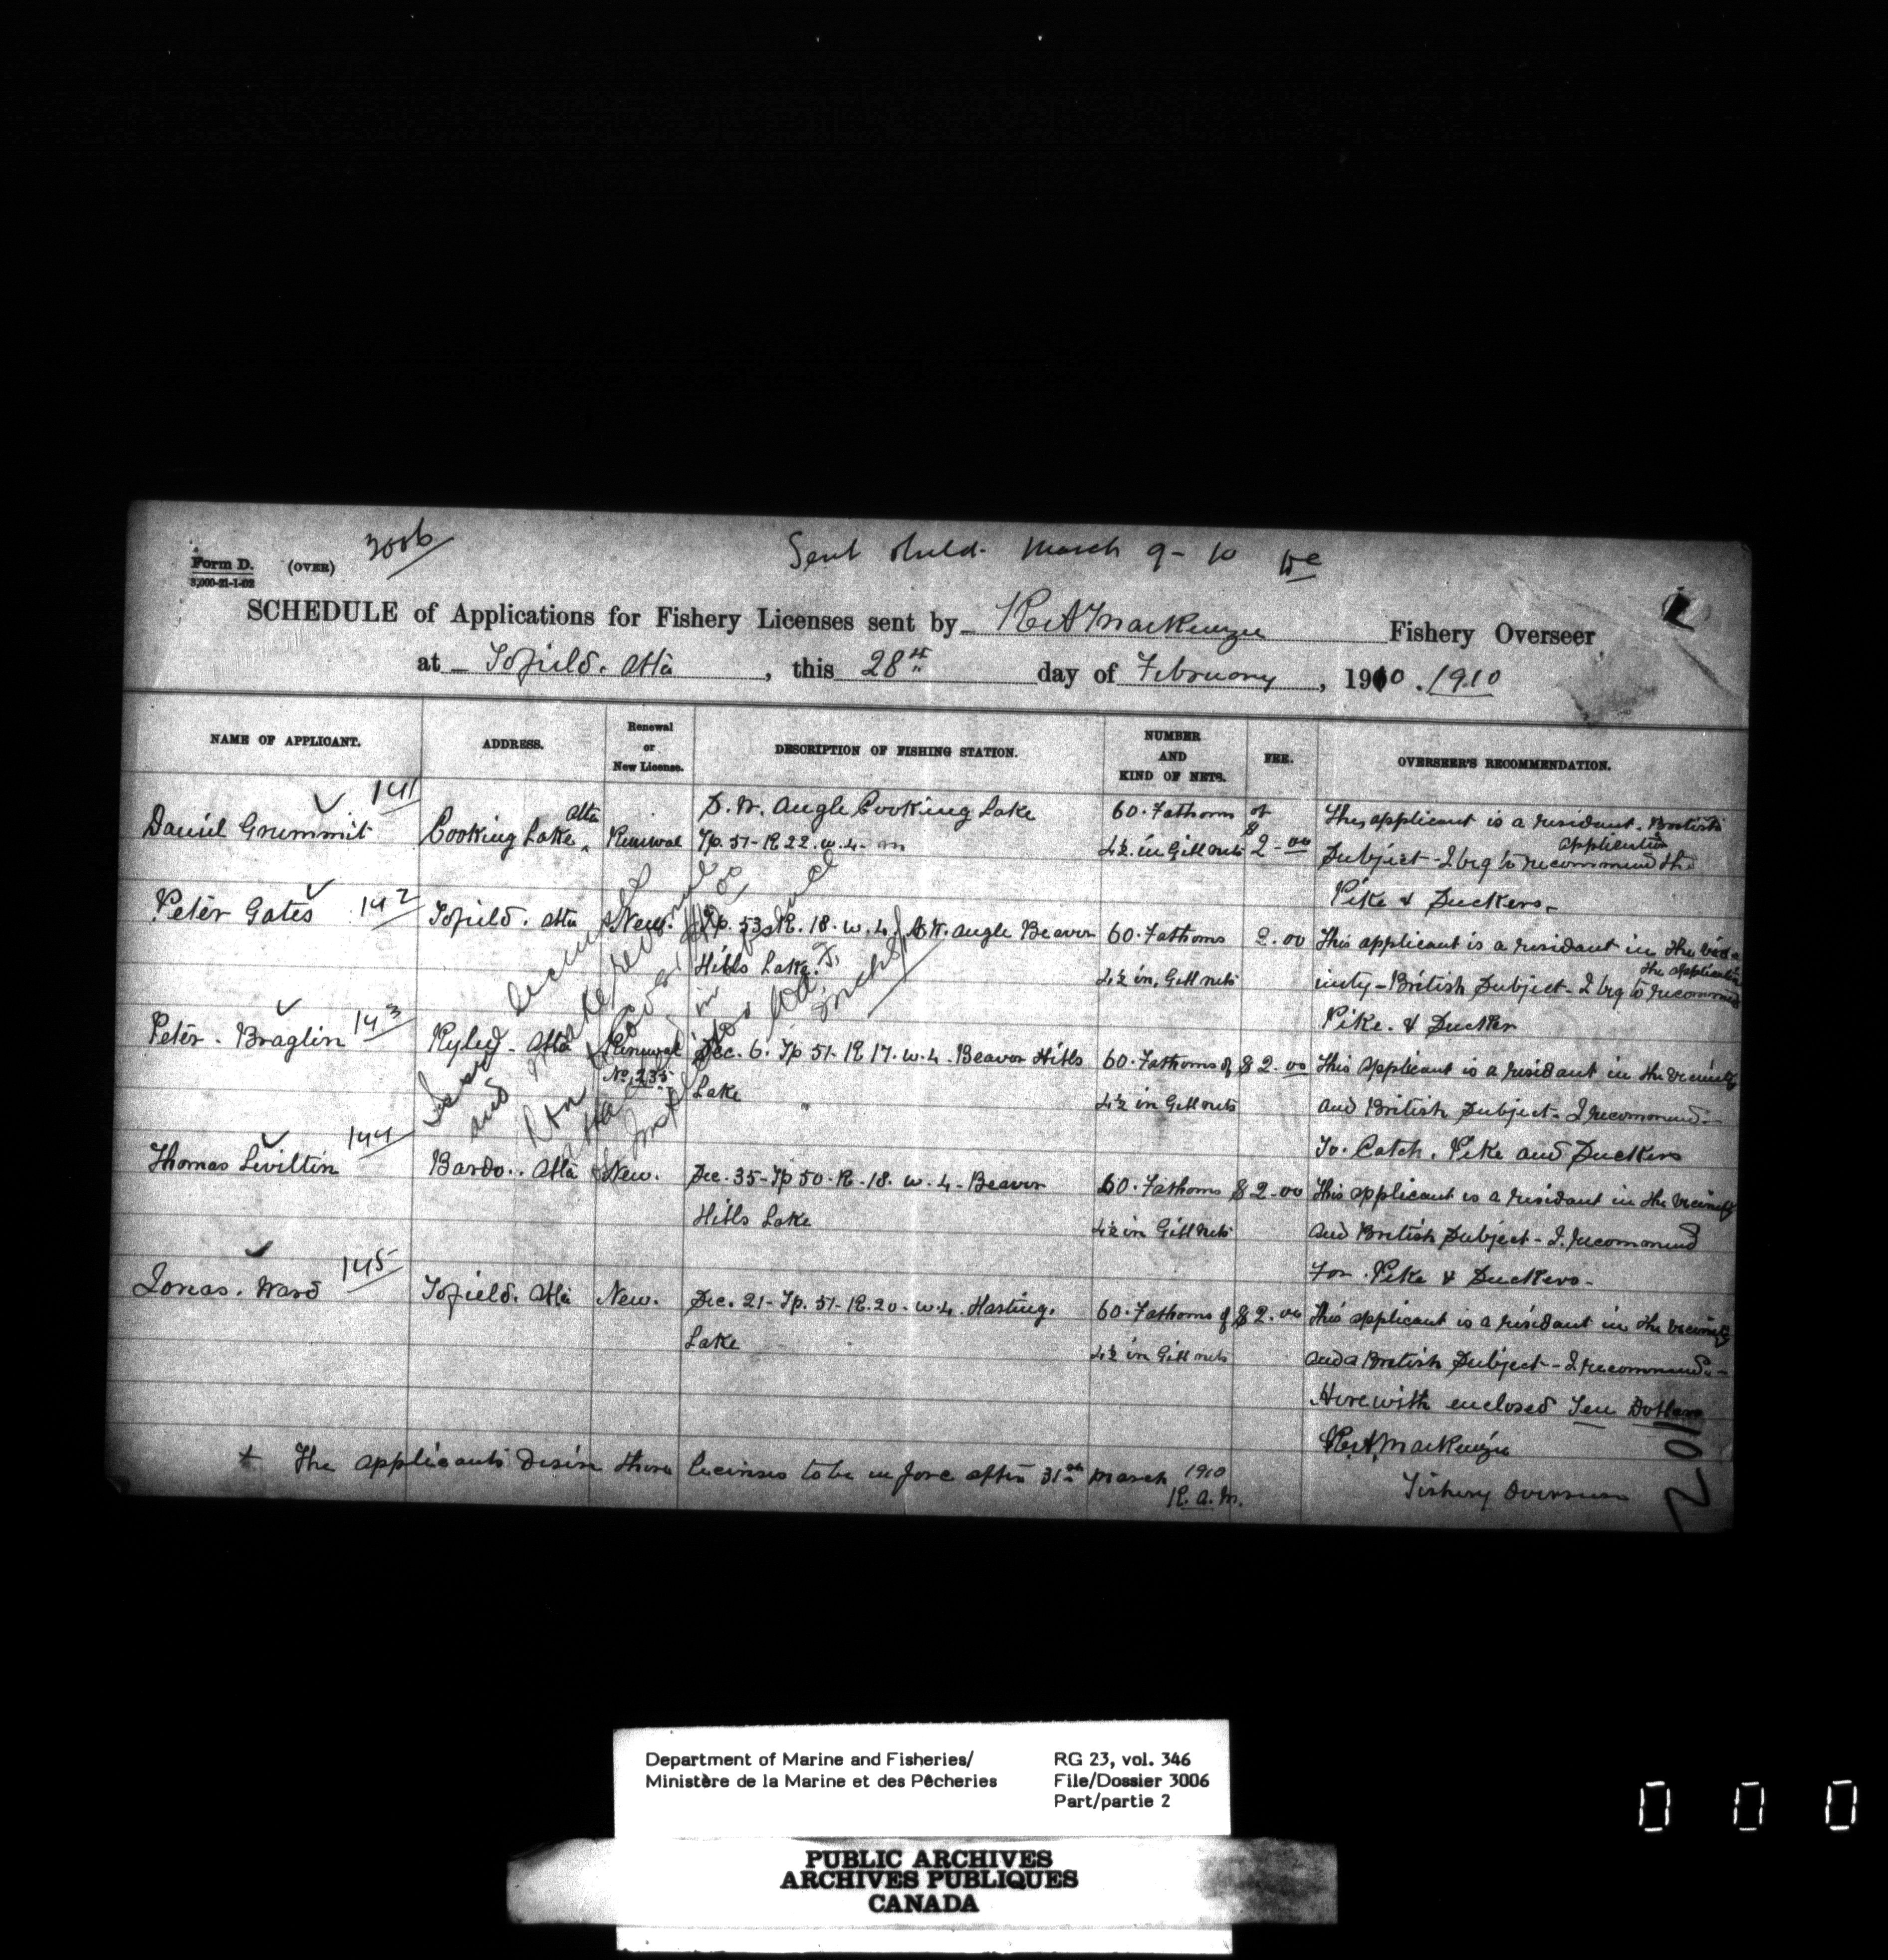 3006
Sent Shild. March 9 - 10
Form D. (OVER)
3,000-21-1-02
SCHEDULE of Applications for Fishery Licenses sent by R A MacKenzie Fishery Overseer
at Tofield. Alta, this 28th day of February, 1910. 1910
NAME OF APPLICANT. ADDRESS. Renewal or New License. DESCRIPTION OF FISHING STATION. NUMBER AND KIND OF NETS. FEE. OVERSEER'S RECOMMENDATION.
141
Daniel Grummit Cooking Lake, Alta Renewal S. W. Angle Cooking Lake 60. Fathoms of $2-00 This applicant is a resident. British
Tp. 51- R 22. w. 4. m 4½ in Gill nets Subject - I beg to recommend the application
Pike & Suckers-
142
Peter Gates Tofield. Alta New. Tp. 53. R. 18. w. 4. S.W. Angle Beaver 60. Fathoms 2.00 This applicant is a residant in the vic-
Hills Lake. 4½ in, Gill nets inity - British Subject - I beg to recommend the application
Pike. & Sucker
143
Peter. Braglin Ryley - Alta Renewal No. 235 Sec. 6. Tp 51- R 17. w. 4. Beaver Hills 60. Fathoms of $2.00 This applicant is a residant in the vicinity
Lake " 4½ in Gill nets and British Subject - I recommend-
To. Catch. Pike and Suckers
144
Thomas Leviltin Bardo.. Alta New. Sec. 35- Tp 50. R. 18. w. 4- Beaver 60. Fathoms $2-00 This applicant is a residant in the vicinity
Hills Lake 4½ in Gill nets and British Subject - I. recommend
For. Pike & Suckers-
145
Jonas. Ward Tofield. Alta New. Sec. 21- Tp. 51- R. 20- w. 4. Hastings. 60. Fathoms of $2.00 This applicant is a residant in the vicinity
Lake 4½ in Gill nets and a British Subject - I recommend.-
Herewith enclosed Ten Dollars
R. A. MacKenzie
Fishery Overseer
+ The applicants desire there licenses to be in forc after 31st March 1910
R. A. M.
Issue licenses
and make renewals
in
Department of Marine and Fisheries/
Ministère de la Marine et des Pêcheries
RG 23, vol. 346
File/Dossier 3006
Part/partie 2
PUBLIC ARCHIVES
ARCHIVES PUBLIQUES
CANADA
0 0 0